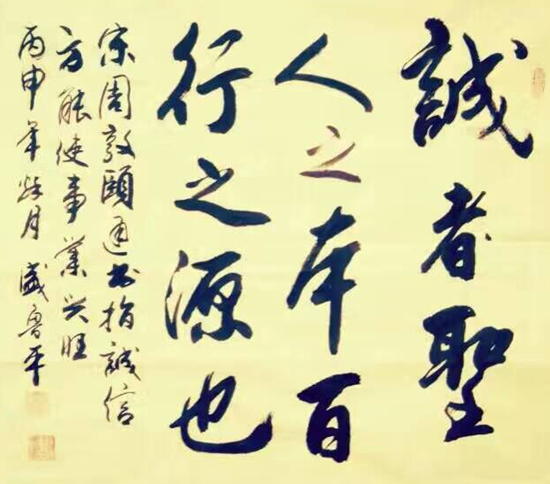 誠者聖
人之本百
行之源也
宋周敦頤通書指誠信
方能使事業兴旺
丙申年 月盛魯平